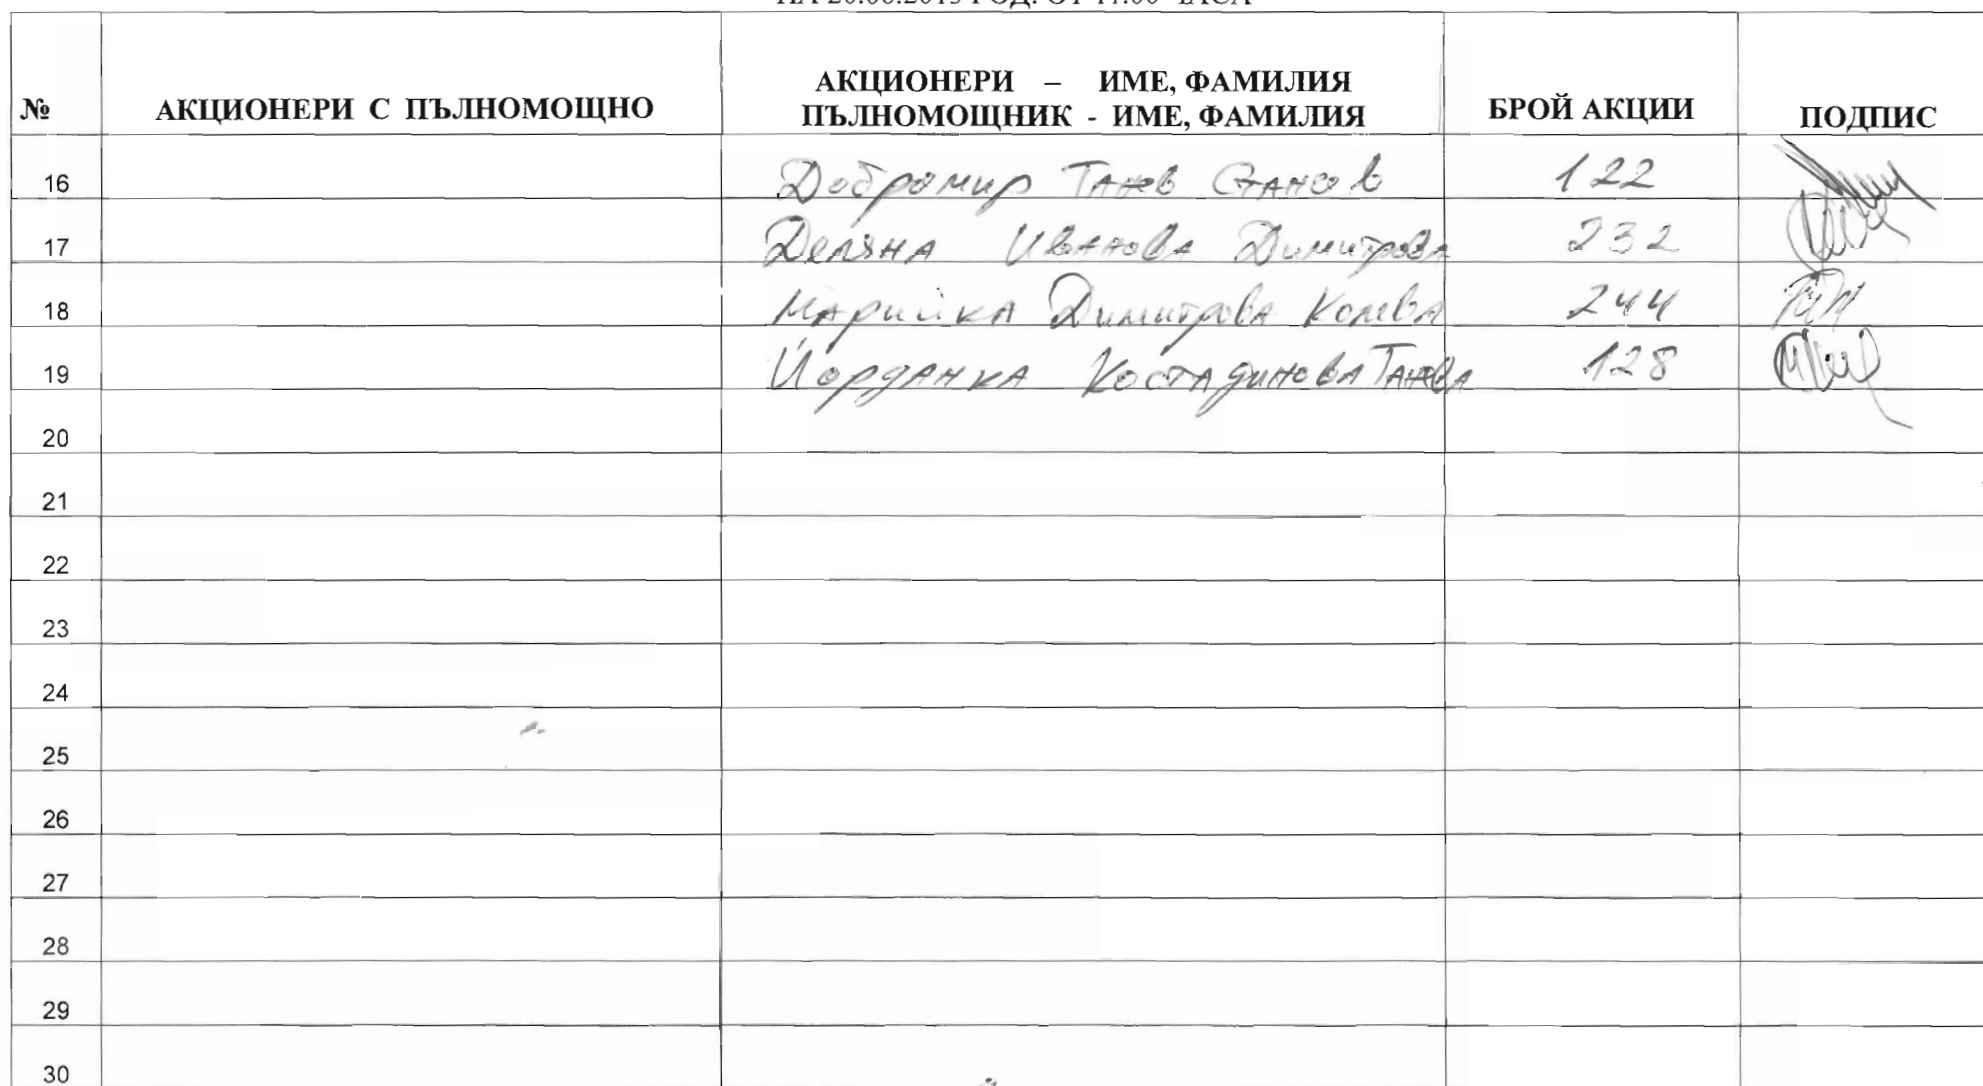 № АКЦИОНЕРИ С ПЪЛНОМОЩНО АКЦИОНЕРИ – ИМЕ, ФАМИЛИЯ ПЪЛНОМОЩНИК - ИМЕ, ФАМИЛИЯ БРОЙ АКЦИИ ПОДПИС
16 Добромир Танев Станев 122
17 Деляна Иванова Димитрова 232
18 Марийка Димитрова Колева 244
19 Йорданка Костадинова Танева 128
20
21
22
23
24
25
26
27
28
29
30